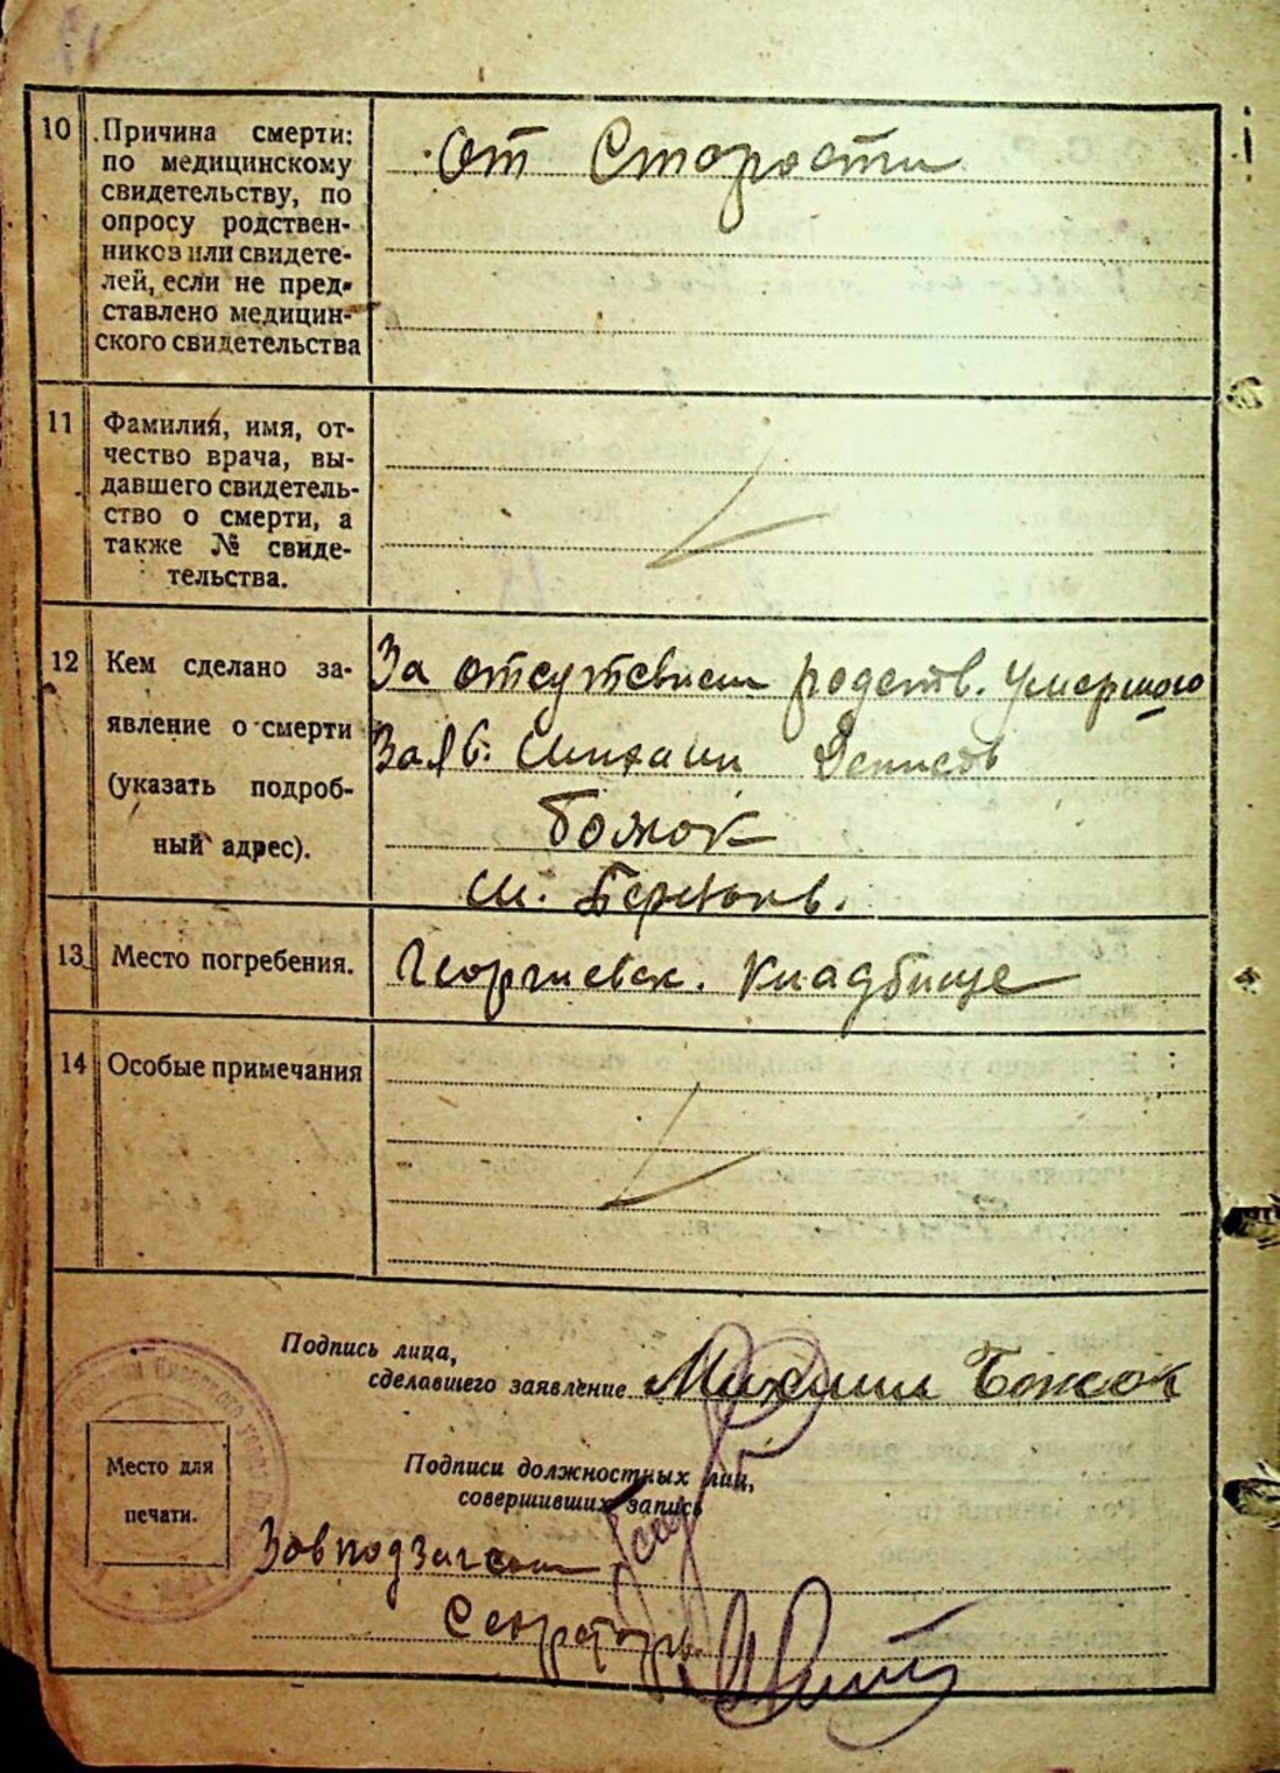 10 Причина смерти:
по медицинскому
свидетельству, по
опросу родствен-
ников или свидете-
лей, если не пред-
ставлено медицин-
ского свидетельства
от Старости
11 Фамилия, имя, от-
чество врача, вы-
давшего свидетель-
ство о смерти, а
также № свиде-
тельства.
12 Кем сделано за-
явление о смерти
(указать подроб-
ный адрес).
За отсутсвием родств. умершого
Заяв. Михаил Денисов
Божок
м.
13 Место погребения.
Георгиевск. кладбище
14 Особые примечания
Подпись лица,
сделавшего заявление Михаил Божок
Место для
печати.
Подписи должностных лиц,
совершивших запись
Завподзагсом
Секретарь